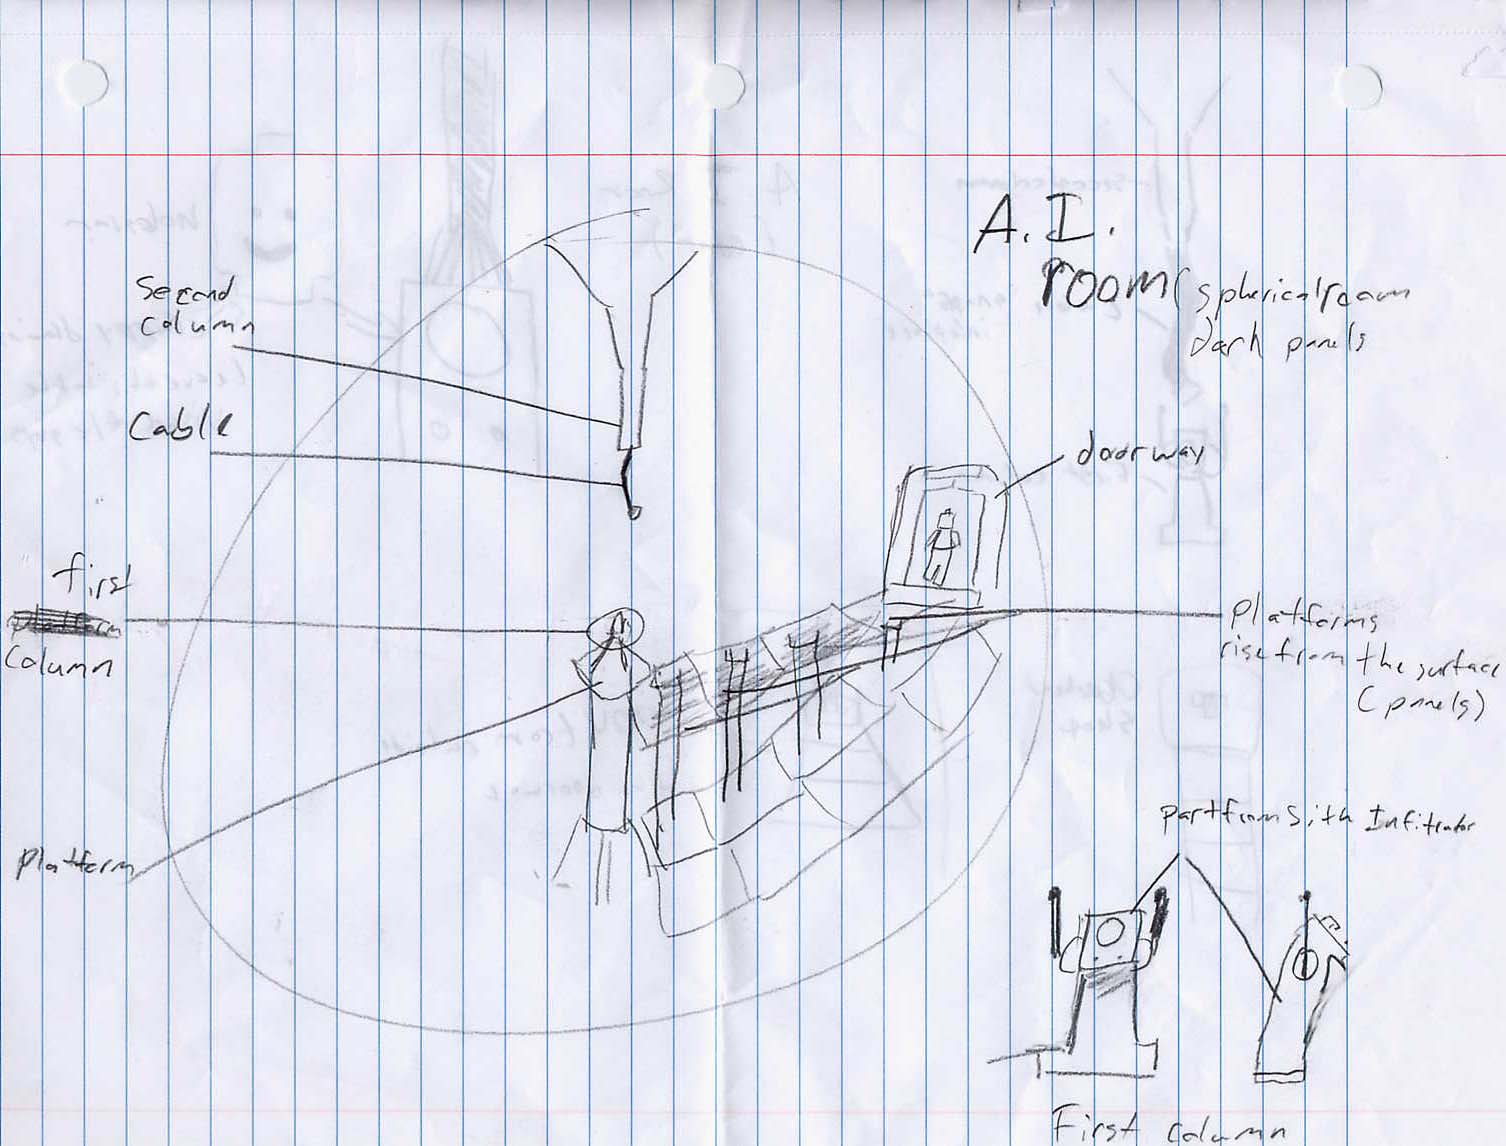 A.I.
room (spherical room
dark panels
Second
column
Cable
doorway
first
platform
column
platforms
rise from the surface
(panels)
platform
part from Sith Infitrator
First column